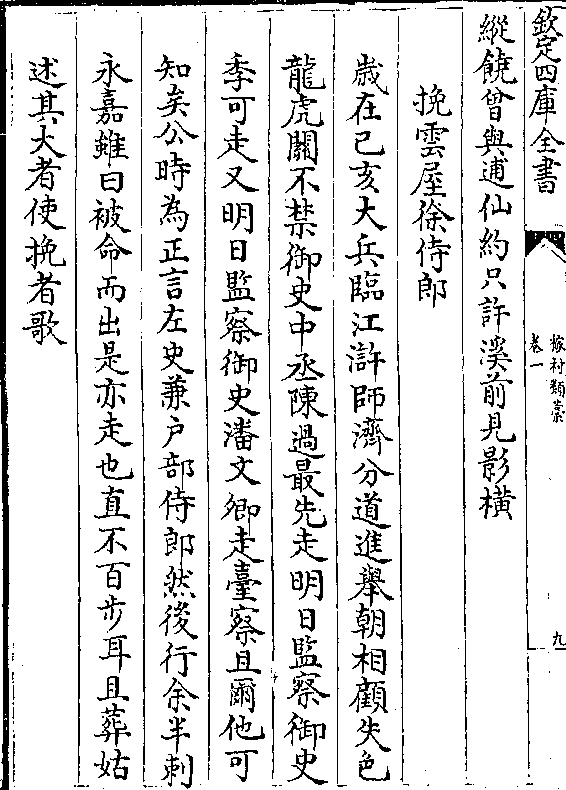 欽定四庫全書
橡村類藁
卷一
九
縱饒曾與逋仙約只許溪前見影橫
挽雲屋徐侍郎
歲在己亥大兵臨江滸師濟分道進舉朝相顧失色
龍虎關不禁御史中丞陳過最先走明日監察御史
季可走又明日監察御史潘文卿走臺察且爾他可
知矣公時為正言左史兼戶部侍郎然後行余半刺
永嘉雖曰被命而出是亦走也直不百步耳且葬姑
述其大者使挽者歌